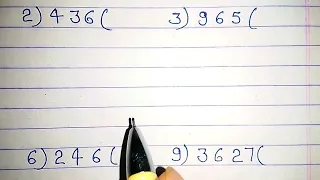 2) 436( 3) 965(
6) 246( 9) 3627(